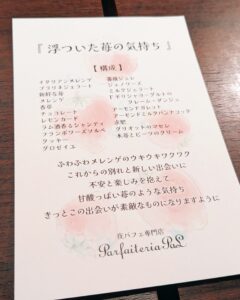 『 浮ついた苺の気持ち 』
【 構成 】
イタリアンメレンゲ
プラリネジェラート
新鮮な苺
メレンゲ
香草
チョコレート
レモンカード
ラム酒香るシャンティ
フランボワーズソルベ
クッキー
グロゼイユ
薔薇ジュレ
ジェノワーズ
ミルクジェラート
ギリシャヨーグルトの
クレーム・ダンジュ
アーモンドガレット
アーモンドミルクパンナコッタ
求肥
グリオットのクセン
木苺とビーツのクリーム
ふわふわメレンゲのウキウキワクワク
これからの別れと新しい出会いに
不安と楽しみを抱えて
甘酸っぱい苺のような気持ち
きっとこの出会いが素敵なものになりますように
夜パフェ専門店
Parfaiteria PaL